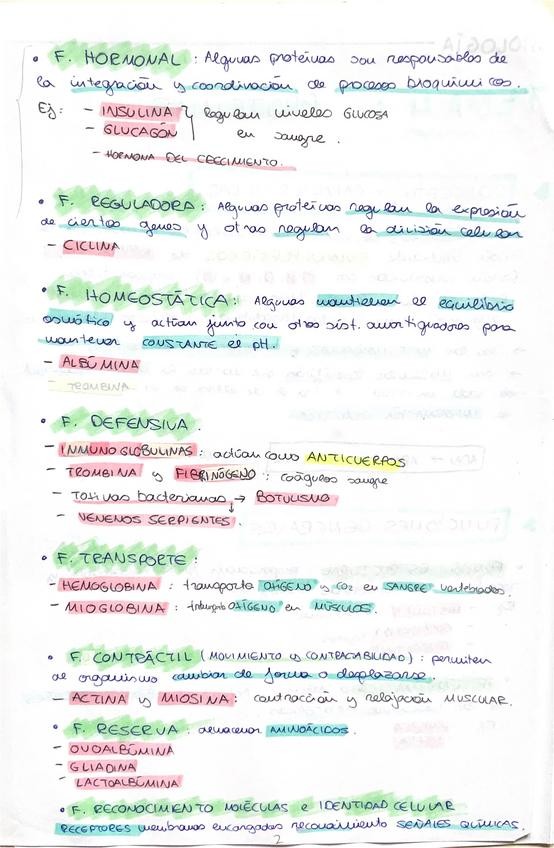 • F. HORMONAL : Algunas proteínas son responsables de
la integración y coordinación de procesos bioquímicos.
Ej: - INSULINA } Regulan niveles GLUCOSA
- GLUCAGÓN en sangre.
- HORMONA DEL CRECIMIENTO.
• F. REGULADORA : Algunas proteínas regulan la expresión
de ciertos genes y otras regulan la división celular
- CICLINA
• F. HOMEOSTÁTICA : Algunas mantienen el equilibrio
osmótico y actúan junto con otros sist. amortiguadores para
mantener CONSTANTE el pH.
- ALBÚMINA
- TROMBINA
• F. DEFENSIVA.
- INMUNOGLOBULINAS : actúan como ANTICUERPOS
- TROMBINA y FIBRINÓGENO : coágulos sangre
- Toxinas bacterianas → BOTULISMO
- VENENOS SERPIENTES.
• F. TRANSPORTE :
- HEMOGLOBINA : transporta OXÍGENO y CO2 en SANGRE vertebrados.
- MIOGLOBINA : transporta OXÍGENO en MÚSCULOS.
• F. CONTRÁCTIL (MOVIMIENTO y CONTRACTABILIDAD) : permiten
al organismo cambiar de forma o desplazarse.
- ACTINA y MIOSINA : contracción y relajación MUSCULAR.
• F. RESERVA : almacenar AMINOÁCIDOS.
- OVOALBÚMINA
- GLIADINA
- LACTOALBÚMINA
• F. RECONOCIMIENTO MOLÉCULAS e IDENTIDAD CELULAR
RECEPTORES membranas encargados reconocimiento SEÑALES QUÍMICAS.
2